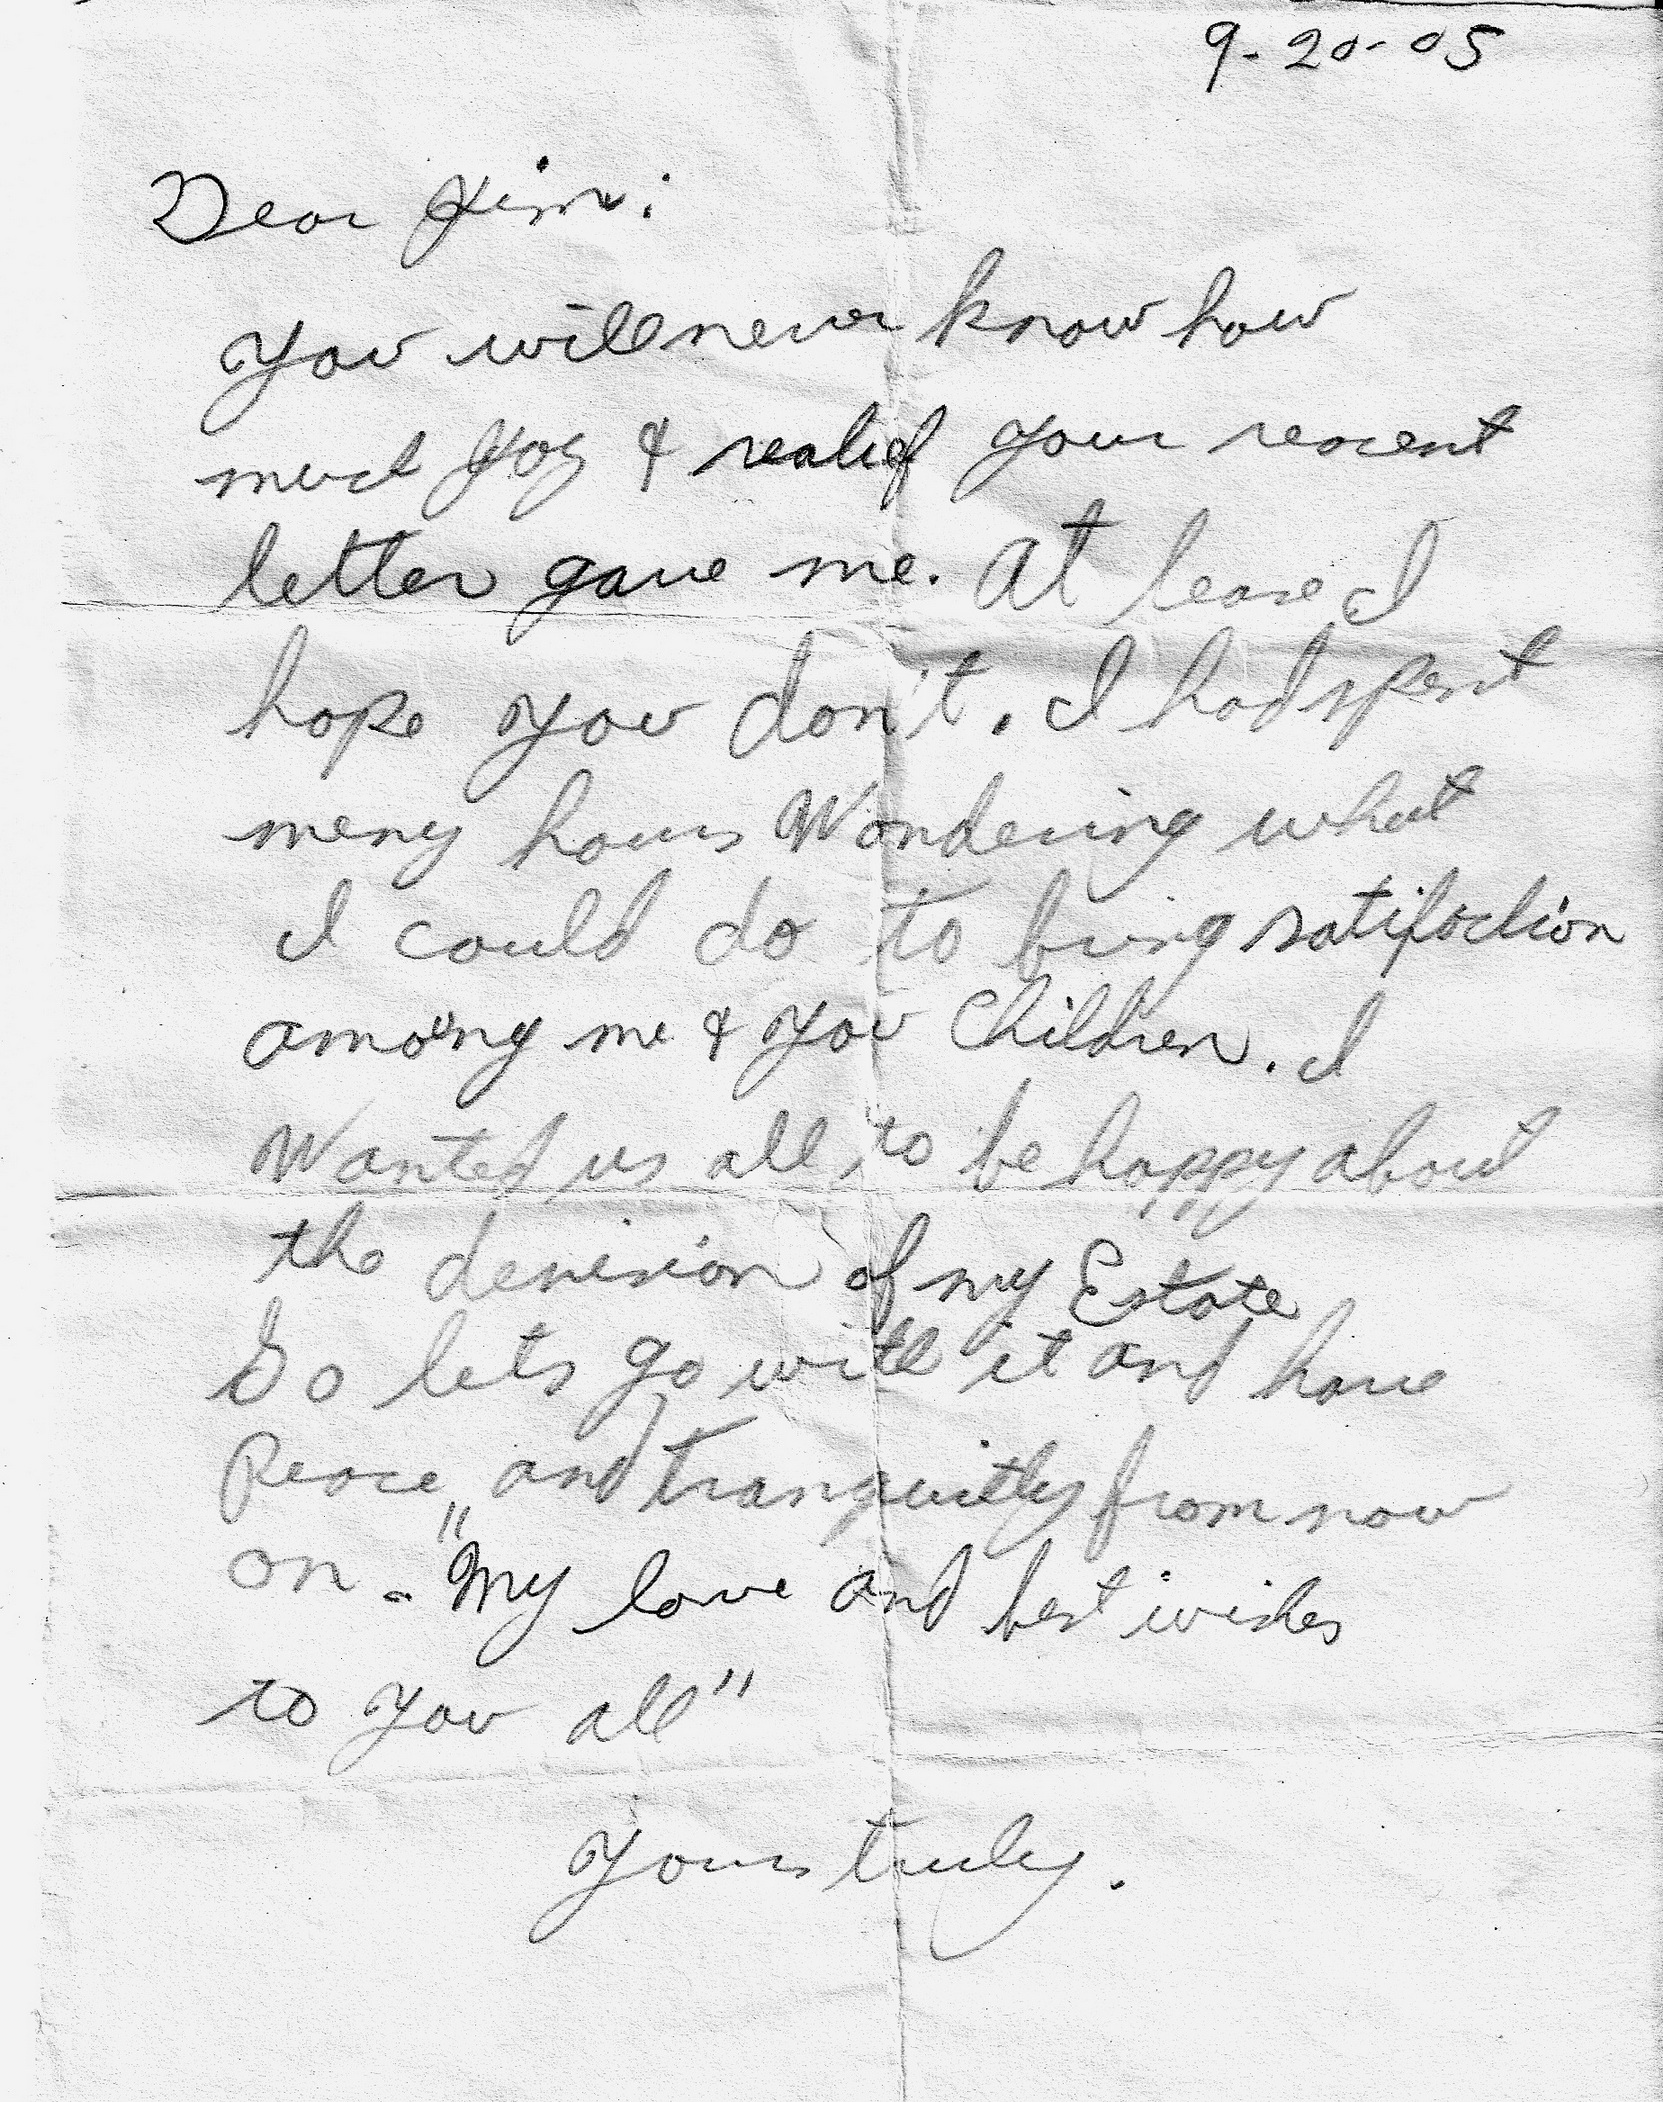 9-20-05
Dear Jim:
You will never know how
much Joy & realief your recent
letter gave me. At lease I
hope you don't. I had spent
meny hours Wondering what
I could do to bring satifaction
among me & you Children. I
Wanted us all to be happy about
the devision of my Estate
So lets go with it and have
Peace and tranquitly from now
on - "My love and best wishes
to you all"
Yours truly.